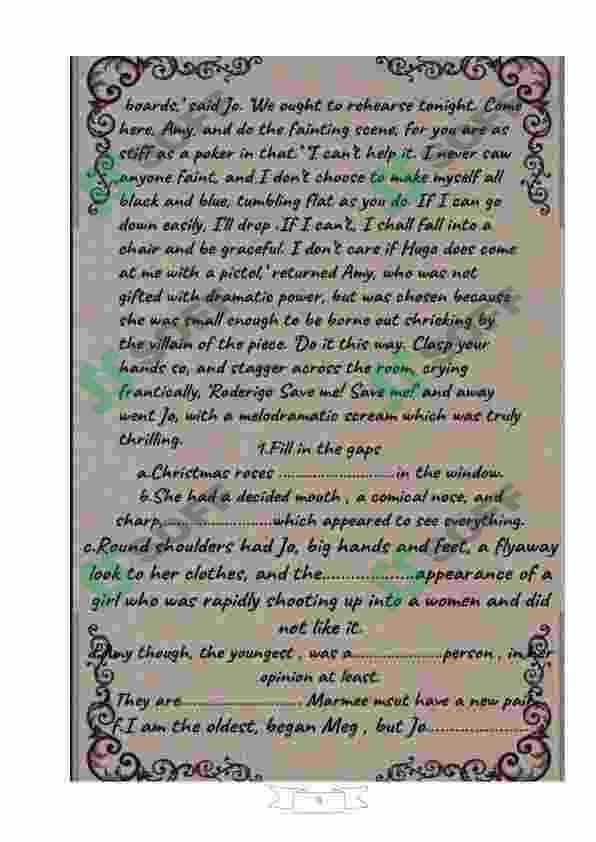 boards,' said Jo. 'We ought to rehearse tonight. Come
here, Amy, and do the fainting scene, for you are as
stiff as a poker in that.' 'I can't help it. I never saw
anyone faint, and I don't choose to make myself all
black and blue, tumbling flat as you do. If I can go
down easily, I'll drop .If I can't, I shall fall into a
chair and be graceful. I don't care if Hugo does come
at me with a pistol,' returned Amy, who was not
gifted with dramatic power, but was chosen because
she was small enough to be borne out shrieking by
the villain of the piece. 'Do it this way. Clasp your
hands so, and stagger across the room, crying
frantically, 'Roderigo Save me! Save me!' and away
went Jo, with a melodramatic scream which was truly
thrilling.
1.Fill in the gaps
a.Christmas roses ..............................in the window.
b.She had a decided mouth , a comical nose, and
sharp,............................which appeared to see everything.
c.Round shoulders had Jo, big hands and feet, a flyaway
look to her clothes, and the...................appearance of a
girl who was rapidly shooting up into a women and did
not like it.
Amy though, the youngest , was a......................person , in her
opinion at least.
They are.............................. Marmee msut have a new pair
f.I am the oldest, began Meg , but Jo.....................
SUFF
SUFF
SUFF
SUFF
SUFF
SUFF